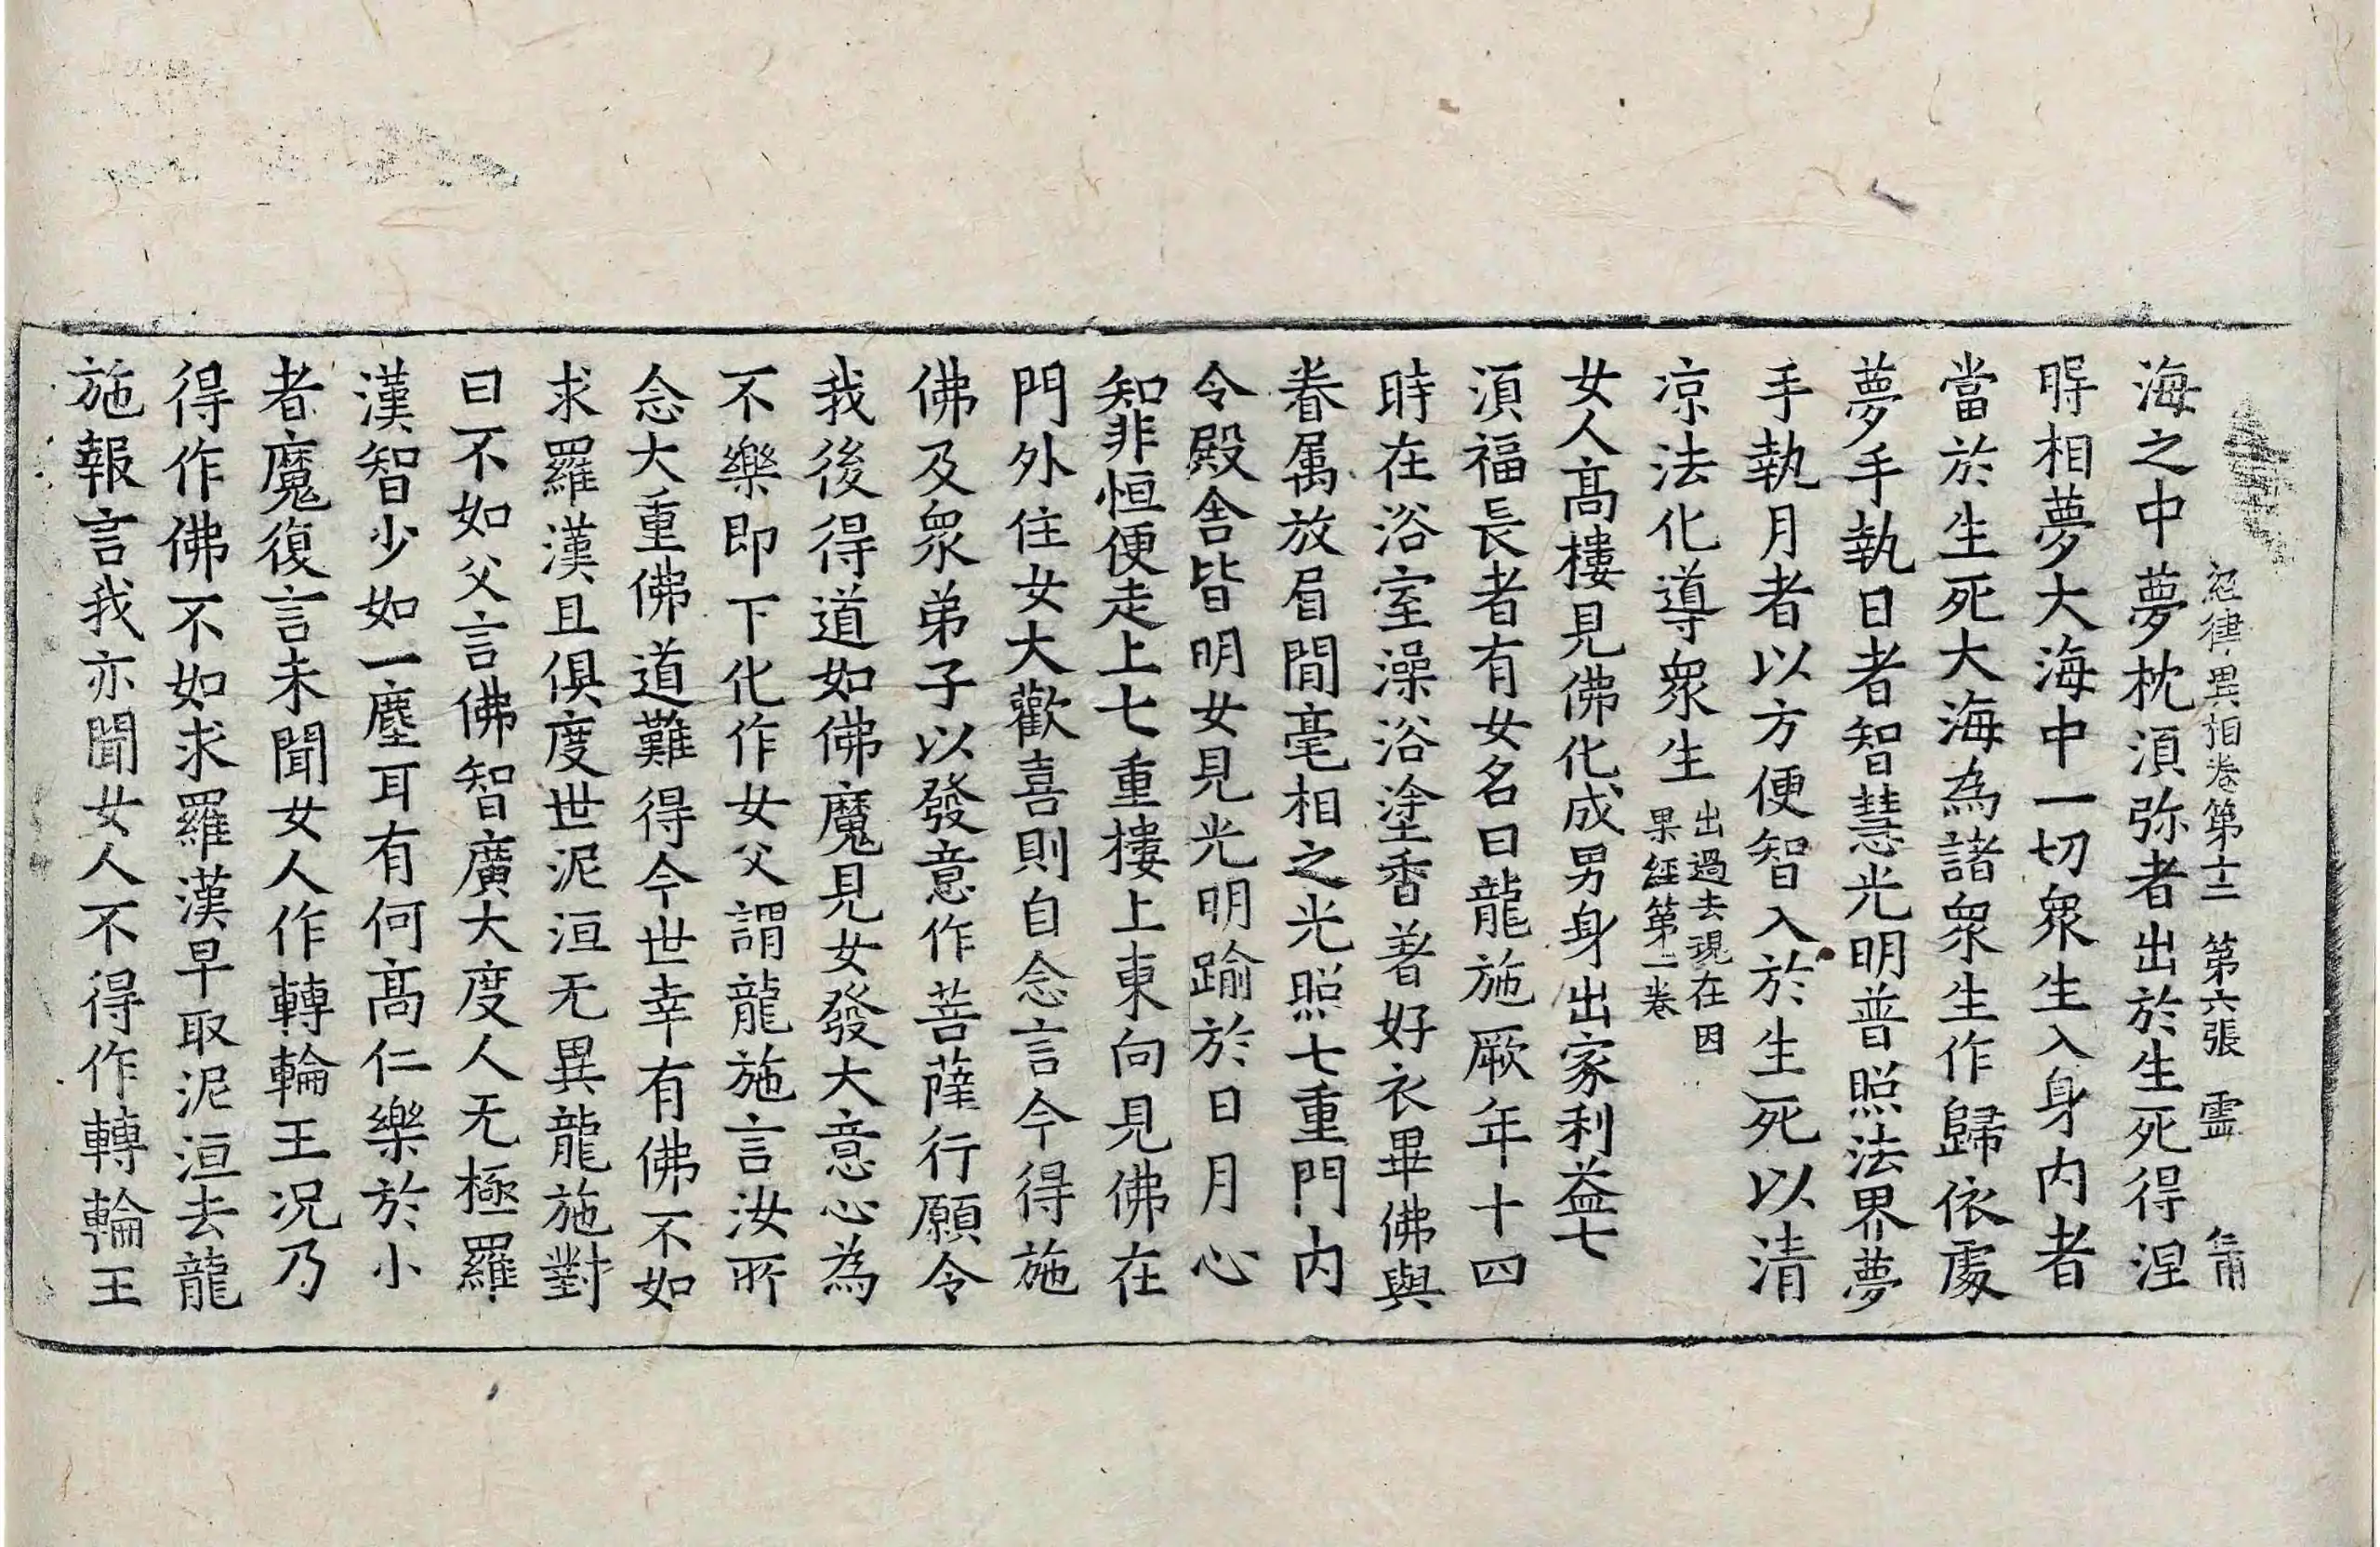 經律異相卷第十二 第六張 靈
海之中夢枕湏弥者出於生死得涅
𣆶相夢大海中一切衆生入身内者
當於生死大海為諸衆生作歸依處
夢手執日者智慧光明普照法界夢
手執月者以方便智入於生死以清
凉法化導衆生出過去現在因
果經第二卷
女人髙樓見佛化成男身出家利益七
湏福長者有女名曰龍施厥年十四
時在浴室澡浴塗香著好衣畢佛與
眷属放眉間毫相之光照七重門内
令殿舍皆明女見光明踰於日月心
知非恒便走上七重樓上東向見佛在
門外住女大歡喜則自念言今得施
佛及衆弟子以發意作菩薩行願令
我後得道如佛魔見女發大意心為
不樂即下化作女父謂龍施言汝所
念大重佛道難得今世幸有佛不如
求羅漢且俱度世泥洹无異龍施對
曰不如父言佛智廣大度人无極羅
漢智少如一塵耳有何髙仁樂於小
者魔復言未聞女人作轉輪王况乃
得作佛不如求羅漢早取泥洹去龍
施報言我亦聞女人不得作轉輪王